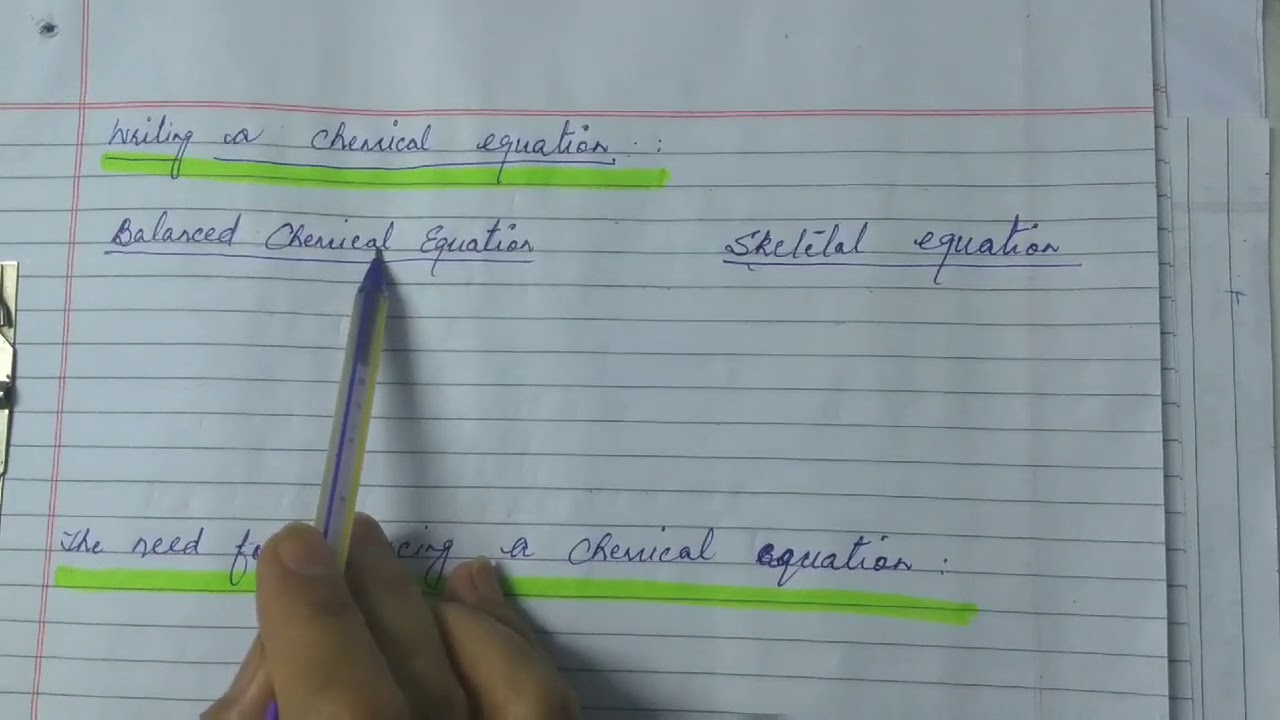 Writing a chemical equation :
Balanced Chemical Equation
Skeletal equation
The need a chemical equation :